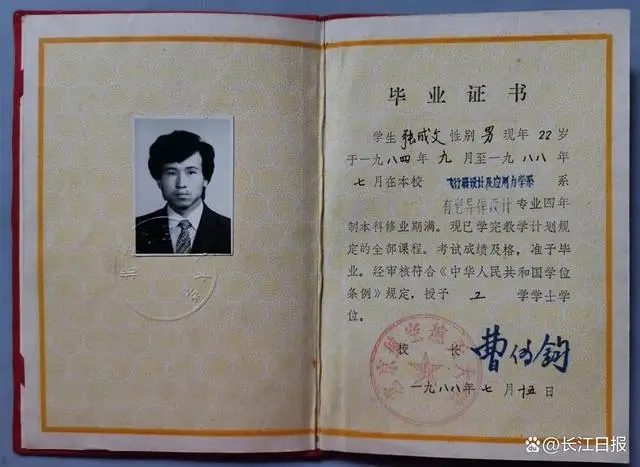 毕业证书
学生 张成文 性别 男 现年 22 岁
于一九八四年 九 月至一九八八年
七月在本校 飞行器设计及应用力学系 系
有翼导弹设计 专业四年
制本科修业期满。现已学完教学计划规
定的全部课程。考试成绩及格，准予毕
业。经审核符合《中华人民共和国学位
条例》规定，授予 工 学学士学
位。
校 长 曹传钧
一九八八年七月十五日
长江日报